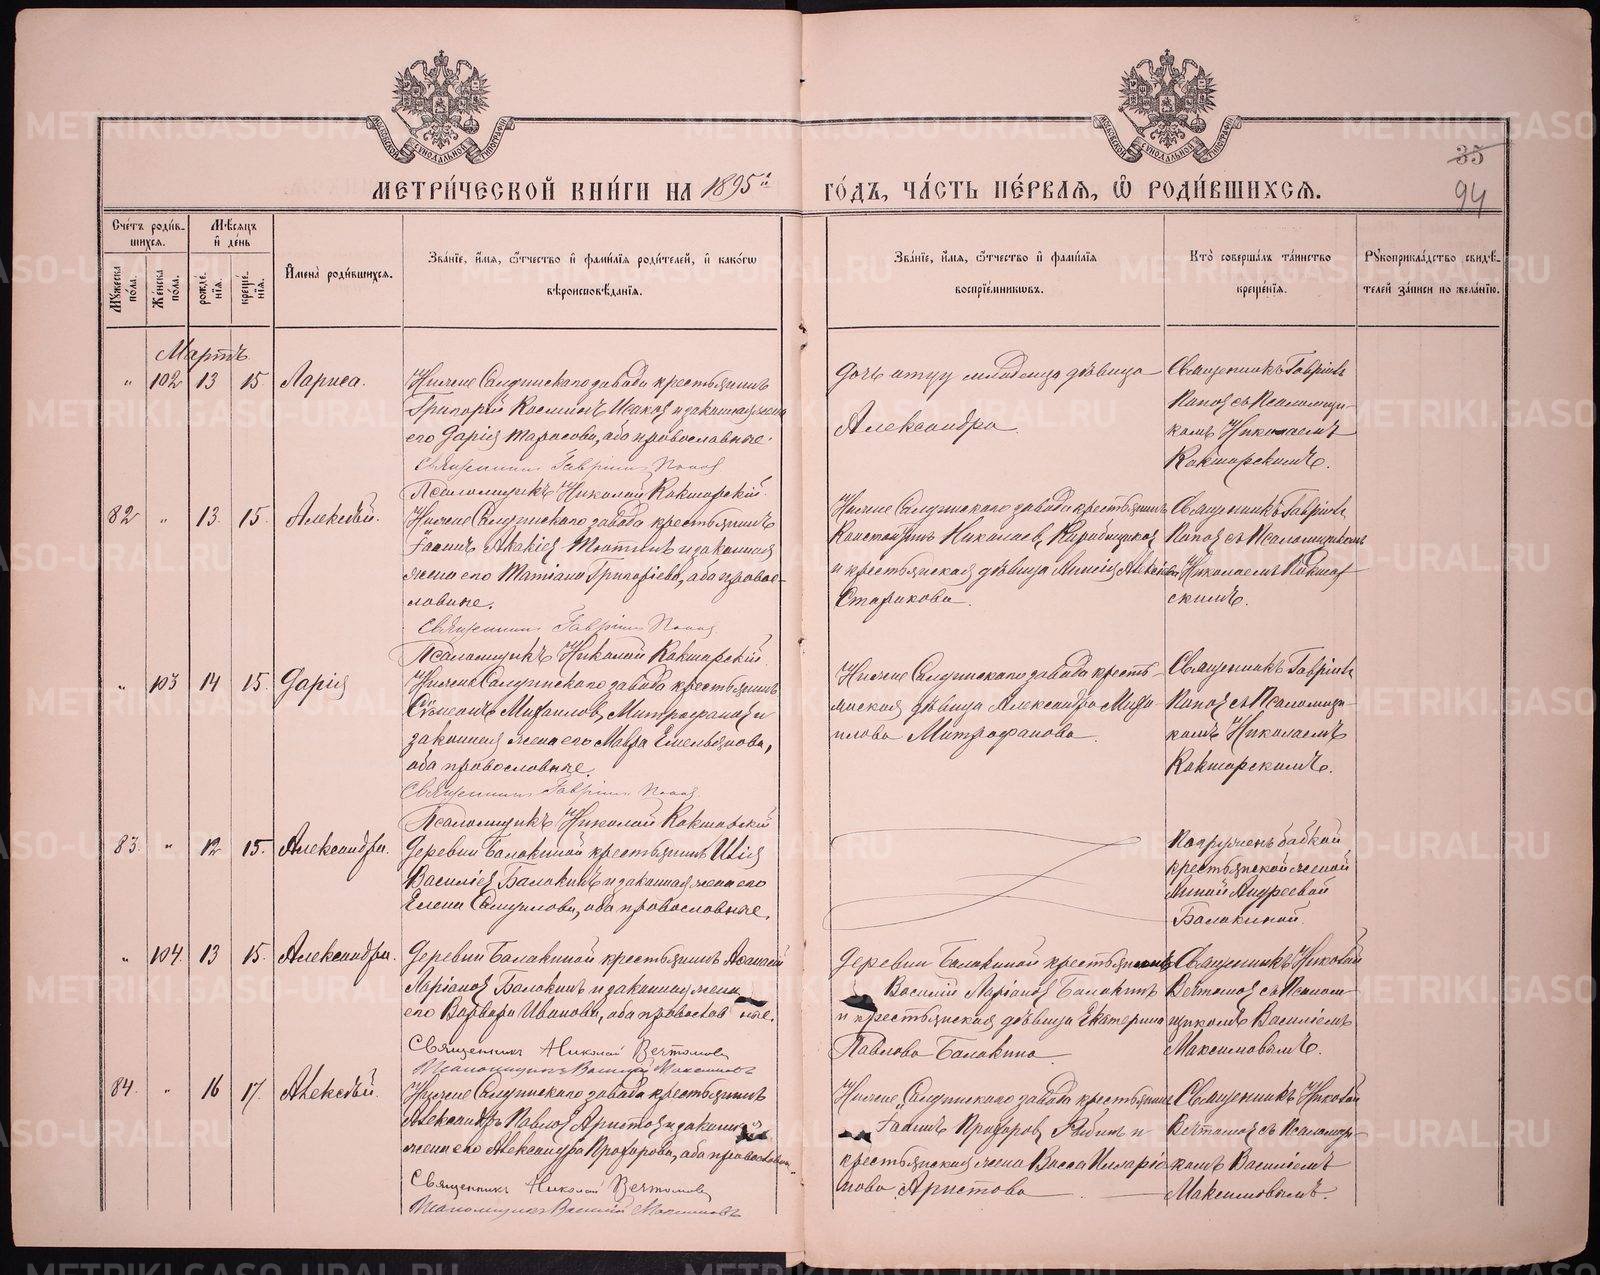 МЕТРИ́ЧЕСКОЙ КНИ́ГИ НА 1895й
ГО́ДЪ, ЧА́СТЬ ПЕ́РВАЯ, Ѡ РОДИ́ВШИХСЯ.
35
94
Сче́тъ роди́в-
шихся.
Мѣ́сяцъ
и҆ де́нь
Мꙋ́жеска по́ла.
Же́нска по́ла.
рожде́нїя.
креще́нїя.
И҆мена̀ роди́вшихся.
Зва́нїе, и҆́мя, ѻ҆́тчество и҆ фами́лїя роди́телей, и҆ како́гѡ
вѣроисповѣ́данїя.
Зва́нїе, и҆́мя, ѻ҆́тчество и҆ фами́лїя
воспрїе́мникѡвъ.
Кто̀ соверша́лъ та́инство
креще́нїя.
Рꙋкоприкла́дство свидѣ́-
телей за́писи по жела́нїю.
Мартъ.
" 102 13 15 Лариса.
Нижне Салдинскаго завода крестьянинъ
Григорій Косминъ Исаковъ и законная жена
его Дарія Тарасова, оба православные.
Священникъ Гавріилъ Поповъ
Псаломщикъ Николай Кокшарскій.
Дочь отцу младенца дѣвица
Александра.
Священникъ Гавріилъ
Поповъ съ Псаломщи-
комъ Николаемъ
Кокшарскимъ.
82 " 13. 15. Алексѣй.
Нижне Салдинскаго завода крестьянинъ
Іоаннъ Акакіевъ Тютинъ и законная
жена его Татіана Григоріева, оба правос-
лавные.
Священникъ Гавріилъ Поповъ
Псаломщикъ Николай Кокшарскій
Нижне Салдинскаго завода крестьянинъ
Константинъ Николаевъ
и крестьянская дѣвица
Старикова.
Священникъ Гавріилъ
Поповъ съ Псаломщикомъ
Николаемъ Кокшар-
скимъ.
" 103 14 15. Дарія
Нижне Салдинскаго завода крестьянинъ
Сѵмеонъ Михаиловъ Митрофановъ и
законная жена его Мавра Емельянова,
оба православные.
Священникъ Гавріилъ Поповъ
Псаломщикъ Николай Кокшарскій
Нижне Салдинскаго завода кресть-
янская дѣвица Александра Миха-
илова Митрофанова.
Священникъ Гавріилъ
Поповъ съ Псаломщи-
комъ Николаемъ
Кокшарскимъ.
83. " 12 15. Александръ.
Деревни Балакиной крестьянинъ Илія
Василіевъ Балакинъ и законная жена его
Елена Самуилова, оба православные.
Погруженъ бабкой
крестьянской женой
Анной Андреевой
Балакиной.
" 104. 13 15. Александра.
Деревни Балакиной крестьянинъ Аѳанасій
Ларіоновъ Балакинъ и законная жена
его Варвара Иванова, оба православные.
Священникъ Николай Вечтомовъ
Псаломщикъ Василій Максимовъ
Деревни Балакиной крестьянинъ
Василій Ларіоновъ Балакинъ
и крестьянская дѣвица Екатерина
Павлова Балакина.
Священникъ Николай
Вечтомовъ съ Псалом-
щикомъ Василіемъ
Максимовымъ.
84. " 16 17. Алексѣй.
Нижне Салдинскаго завода крестьянинъ
Александръ Павловъ Аристовъ и законная
жена его Александра Прохорова, оба православные.
Священникъ Николай Вечтомовъ
Псаломщикъ Василій Максимовъ
Нижне Салдинскаго завода крестьянинъ
Іоаннъ Прохоровъ Рябинъ и
крестьянская жена Васса Иларіо-
нова Аристова.
Священникъ Николай
Вечтомовъ съ Псаломщи-
комъ Василіемъ
Максимовымъ.